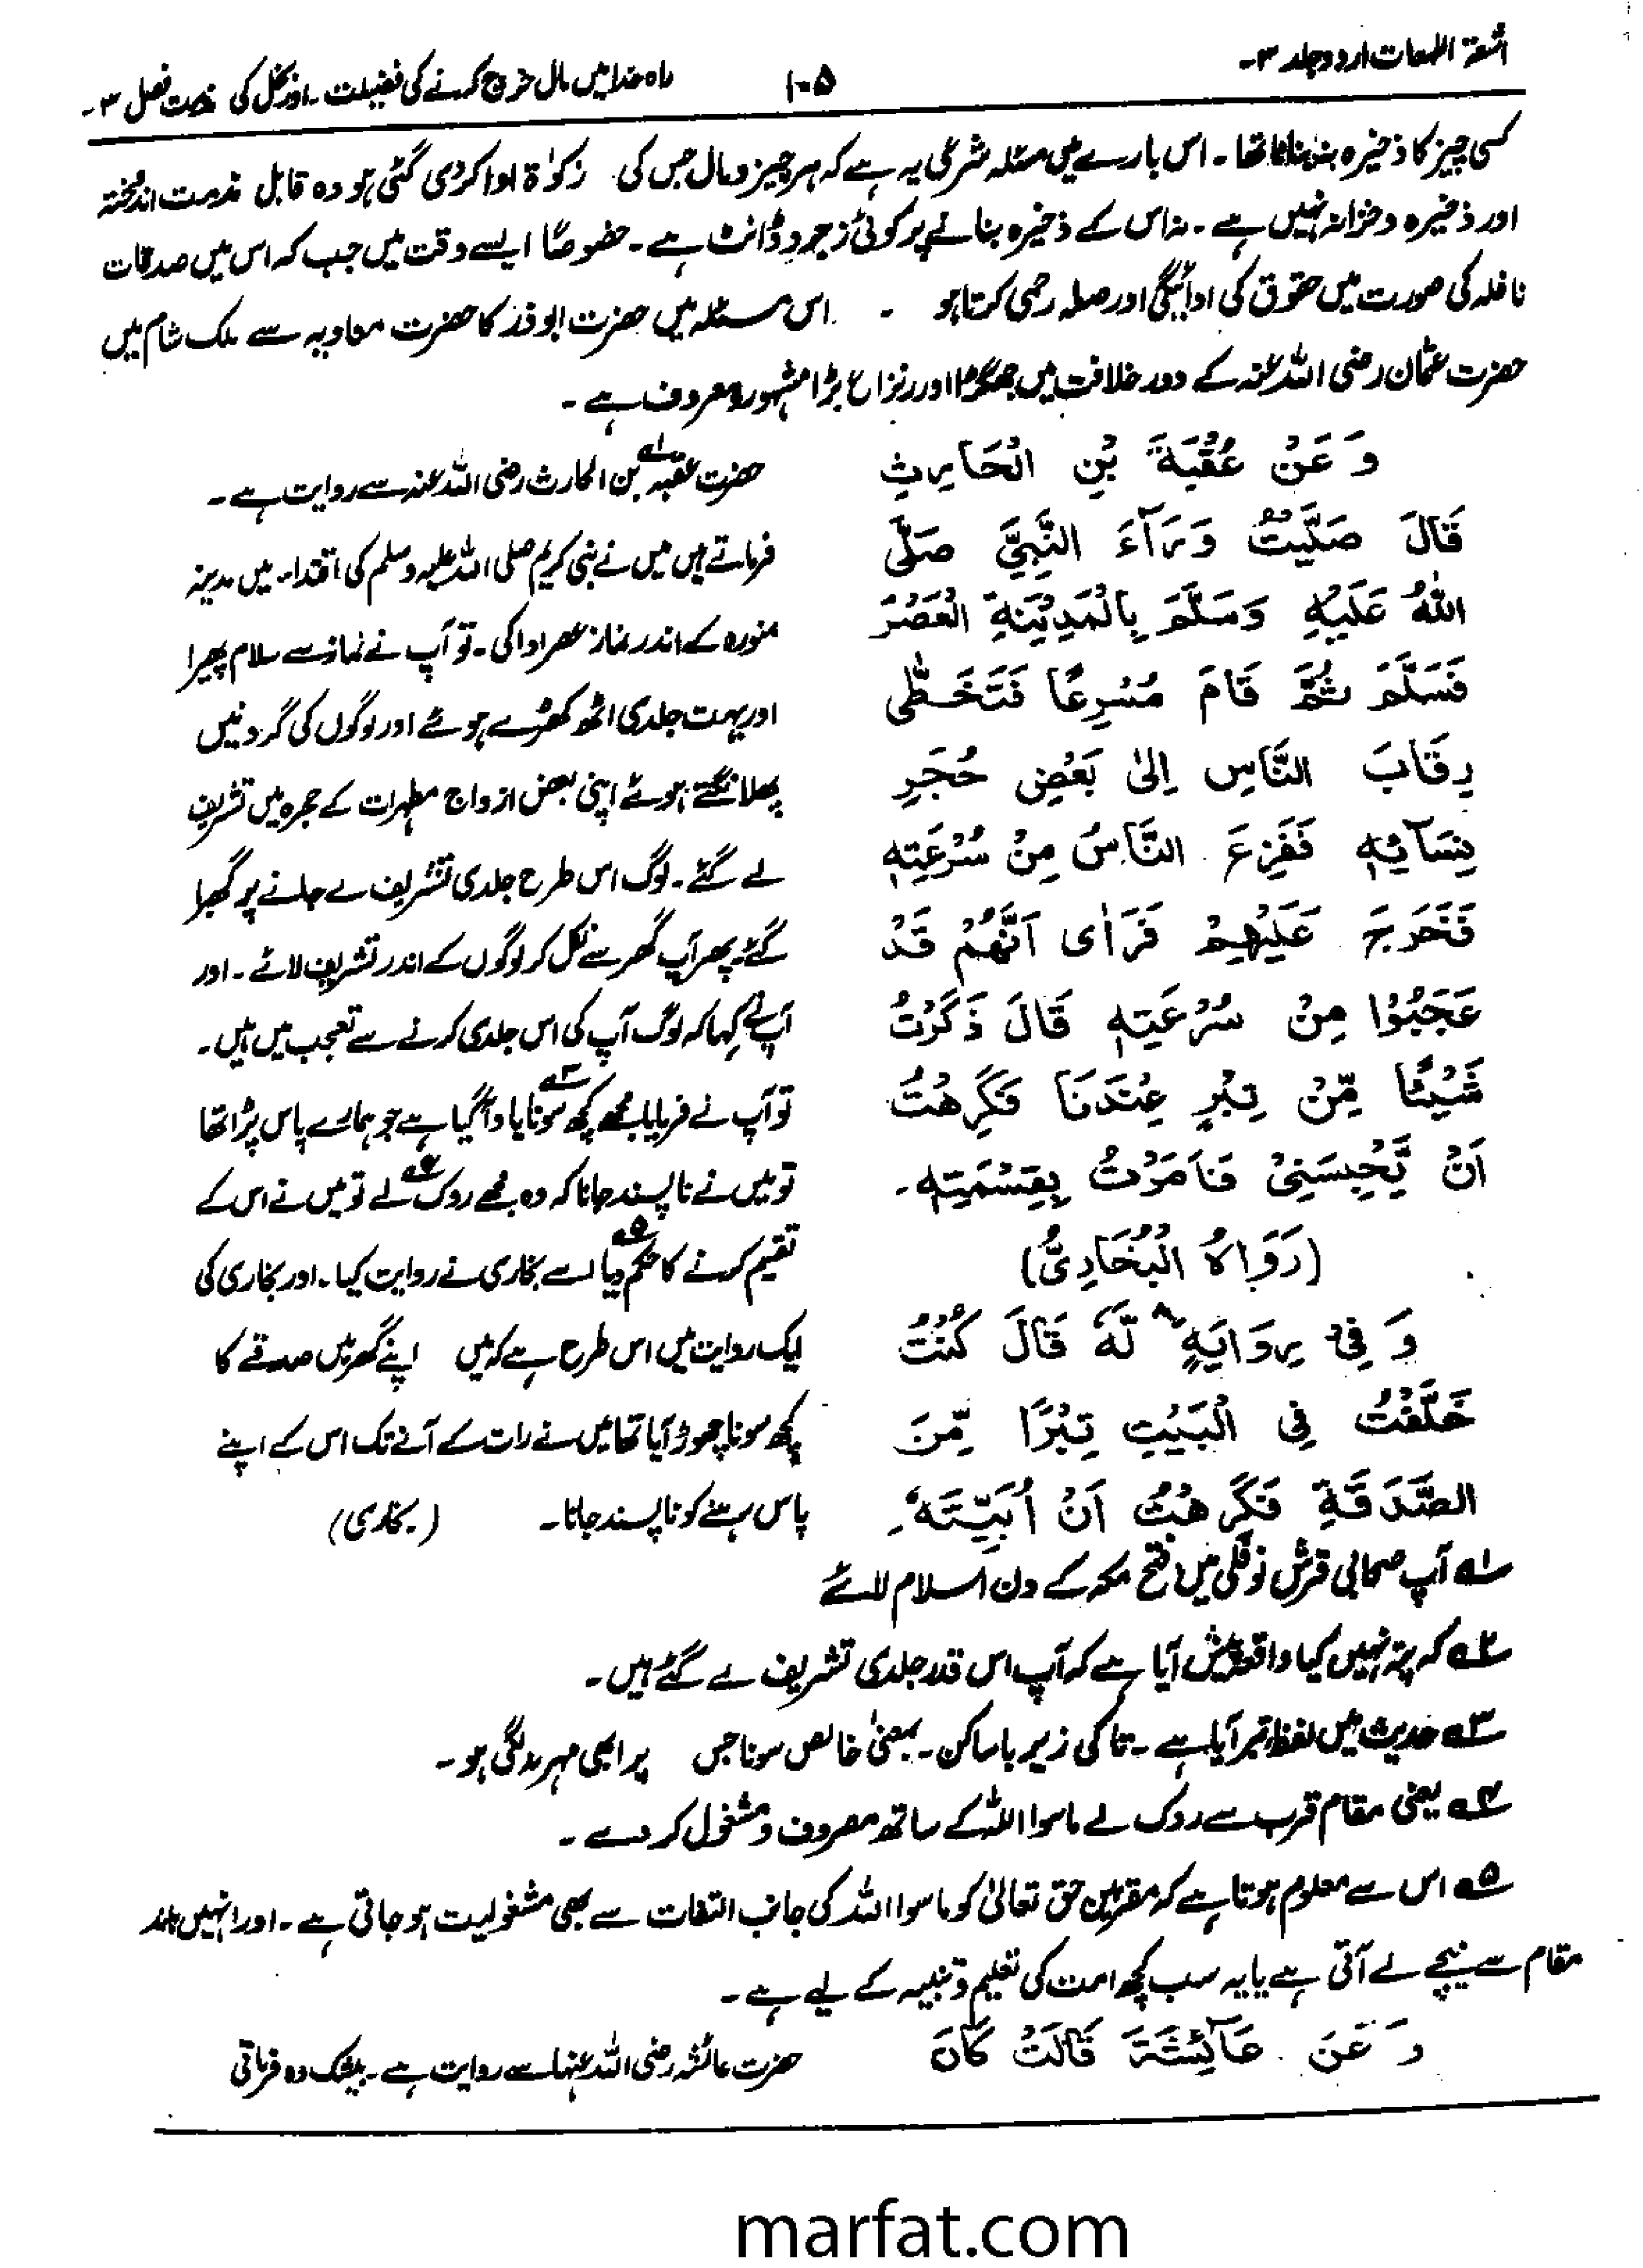 اشعۃ اللمعات اردو جلد ۳۔
۱۰۵
راہ خدا میں مال خرچ کرنے کی فضیلت۔ اور بخل کی مذمت فصل ۳۔
کسی چیز کا ذخیرہ نہ بنانا تھا۔ اس بارے میں مسئلہ شرعی یہ ہے کہ ہر چیز و مال جس کی زکوٰۃ ادا کردی گئی ہو وہ قابل مذمت اندوختہ
اور ذخیرہ و خزانہ نہیں ہے۔ نہ اس کے ذخیرہ بنانے پر کوئی زجر و ڈانٹ ہے۔ خصوصًا ایسے وقت میں جب کہ اس میں صدقات
نافلہ کی صورت میں حقوق کی ادائیگی اور صلہ رحمی کرتا ہو ۔ اس مسئلہ میں حضرت ابوذر کا حضرت معاویہ سے ملک شام میں
حضرت عثمان رضی اللہ عنہ کے دور خلافت میں جھگڑا اور نزاع بڑا مشہور و معروف ہے۔
وَعَنْ عُقْبَةَ بْنِ الْحَارِثِ
قَالَ صَلَّيْتُ وَرَآءَ النَّبِيِّ صَلَّى
اللّٰهُ عَلَيْهِ وَسَلَّمَ بِالْمَدِيْنَةِ الْعَصْرَ
فَسَلَّمَ ثُمَّ قَامَ مُسْرِعًا فَتَخَطّٰى
رِقَابَ النَّاسِ اِلٰى بَعْضِ حُجَرِ
نِسَآئِهٖ فَفَزِعَ النَّاسُ مِنْ سُرْعَتِهٖ
فَخَرَجَ عَلَيْهِمْ فَرَاٰى اَنَّهُمْ قَدْ
عَجَبُوْا مِنْ سُرْعَتِهٖ قَالَ ذَكَرْتُ
شَيْئًا مِّنْ تِبْرٍ عِنْدَنَا فَكَرِهْتُ
اَنْ يَّحْبِسَنِىْ فَاَمَرْتُ بِقِسْمَتِهٖ۔
(رَوَاهُ الْبُخَارِىُّ)
وَ فِىْ رِوَايَةٍ لَّهٗ قَالَ كُنْتُ
خَلَّفْتُ فِى الْبَيْتِ تِبْرًا مِّنَ
الصَّدَقَةِ فَكَرِهْتُ اَنْ اُبَيِّتَهٗ۔
حضرت عقبہ ۱ بن الحارث رضی اللہ عنہ سے روایت ہے۔
فرماتے ہیں میں نے نبی کریم صلی اللہ علیہ وسلم کی اقتداء میں مدینہ
منورہ کے اندر نماز عصر ادا کی۔ تو آپ نے نماز سے سلام پھیرا
اور بہت جلدی اٹھ کھڑے ہوئے اور لوگوں کی گردنیں
پھلانگتے ہوئے اپنی بعض ازواج مطہرات کے حجرہ میں تشریف
لے گئے۔ لوگ اس طرح جلدی تشریف لے جانے پر گھبرا
گئے۔ پھر آپ گھر سے نکل کر لوگوں کے اندر تشریف لائے۔ اور
آپ نے کہا کہ لوگ آپ کی اس جلدی کرنے سے تعجب میں ہیں۔
تو آپ نے فرمایا مجھے کچھ سونا ۳ یاد آگیا ہے جو ہمارے پاس پڑا تھا
تو میں نے ناپسند جانا کہ وہ مجھے روک ۴ لے تو میں نے اس کے
تقسیم کرنے کا حکم ۵ دیا اسے بخاری نے روایت کیا۔ اور بخاری کی
ایک روایت میں اس طرح ہے کہ میں اپنے گھر میں صدقے کا
کچھ سونا چھوڑ آیا تھا میں نے رات کے آنے تک اس کے اپنے
پاس رہنے کو ناپسند جانا۔ (بخاری)
۱ آپ صحابی قرشی نوفلی ہیں فتح مکہ کے دن اسلام لائے
۲ کہ پتہ نہیں کیا واقعہ پیش آیا ہے کہ آپ اس قدر جلدی تشریف لے گئے ہیں۔
۳ حدیث میں لفظ تبر آیا ہے۔ تا کی زیر با ساکن۔ بمعنیٰ خالص سونا جس پر ابھی مہر نہ لگی ہو۔
۴ یعنی مقام قرب سے روک لے ماسوا اللہ کے ساتھ مصروف و مشغول کر دے۔
۵ اس سے معلوم ہوتا ہے کہ مقربین حق تعالیٰ کو ماسوا اللہ کی جانب التفات سے بھی مشغولیت ہو جاتی ہے۔ اور انہیں بلند
مقام سے نیچے لے آتی ہے یا یہ سب کچھ امت کی تعلیم و تنبیہ کے لیے ہے۔
وَعَنْ عَآئِشَةَ قَالَتْ كَانَ
حضرت عائشہ رضی اللہ عنہا سے روایت ہے۔ بیشک وہ فرماتی
marfat.com